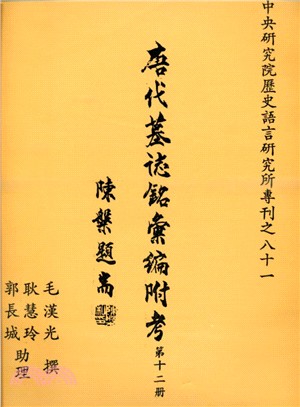 中央研究院歷史語言研究所專刊之八十一
唐代墓誌銘彙編附考
第十二册
陳槃題耑
毛漢光 撰
耿慧玲
郭長城 助理